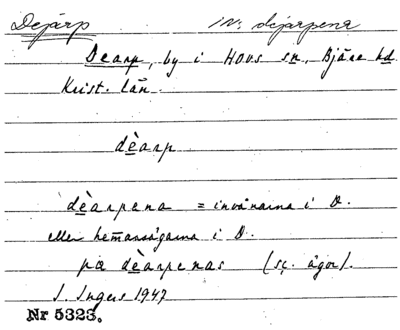 Dejärp inv. dejarpena
Dearp, by i Hovs sn, Bjäre hd
Krist. län.
dèarp
dèarpena = invånarna i D.
eller hemmansägarna i D.
pæ dèarpenas (sç. ägor).
I. Ingers 1947
Nr 5323.